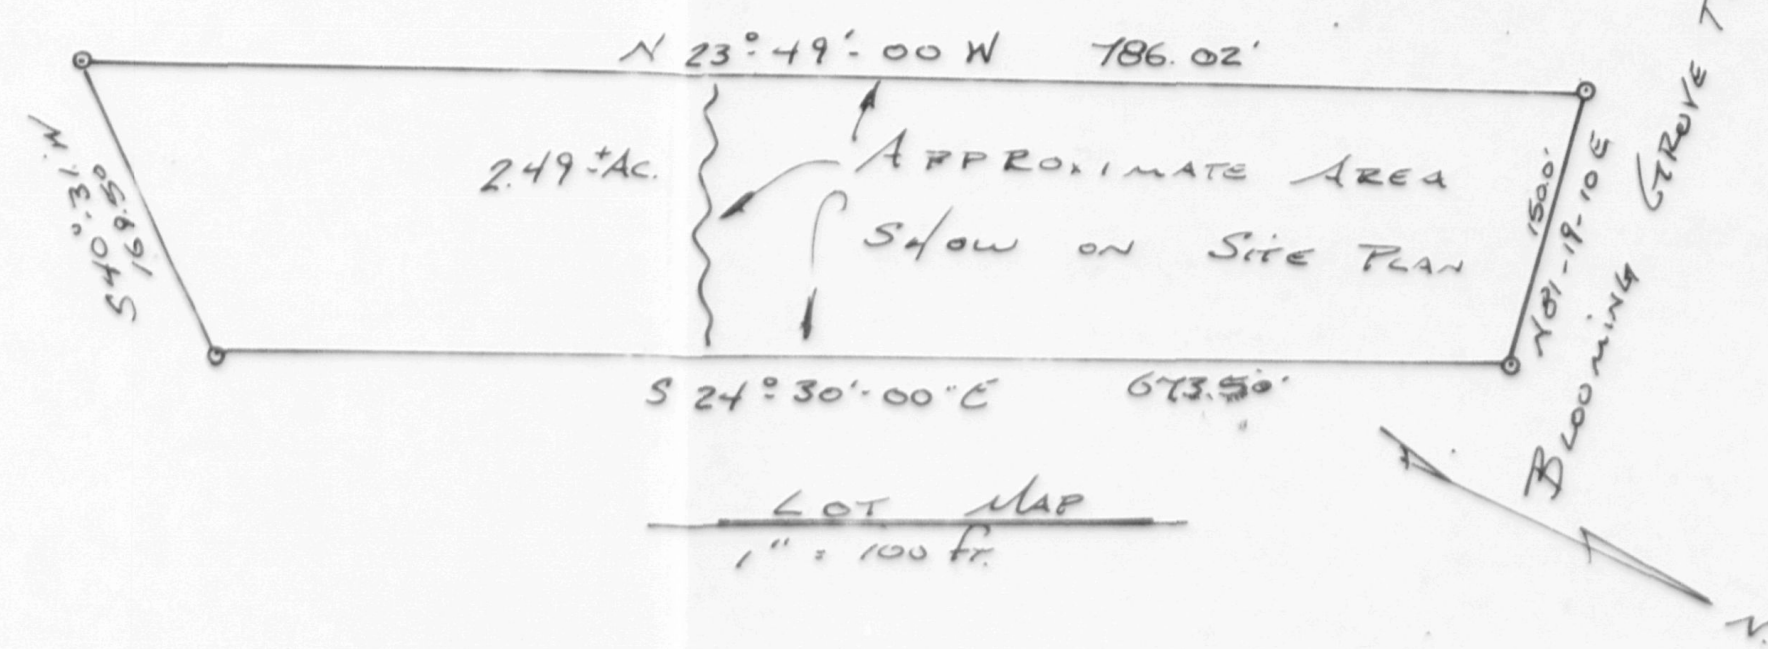 N 23°-49'-00 W 786.02'
2.49 ± Ac.
APPROXIMATE AREA
SHOW ON SITE PLAN
S 40°-31' W
168.50
150.0'
N81-19-10 E
BLOOMING GROVE T
S 24°-30'-00" E 673.50'
LOT MAP
1" = 100 FT.
N.